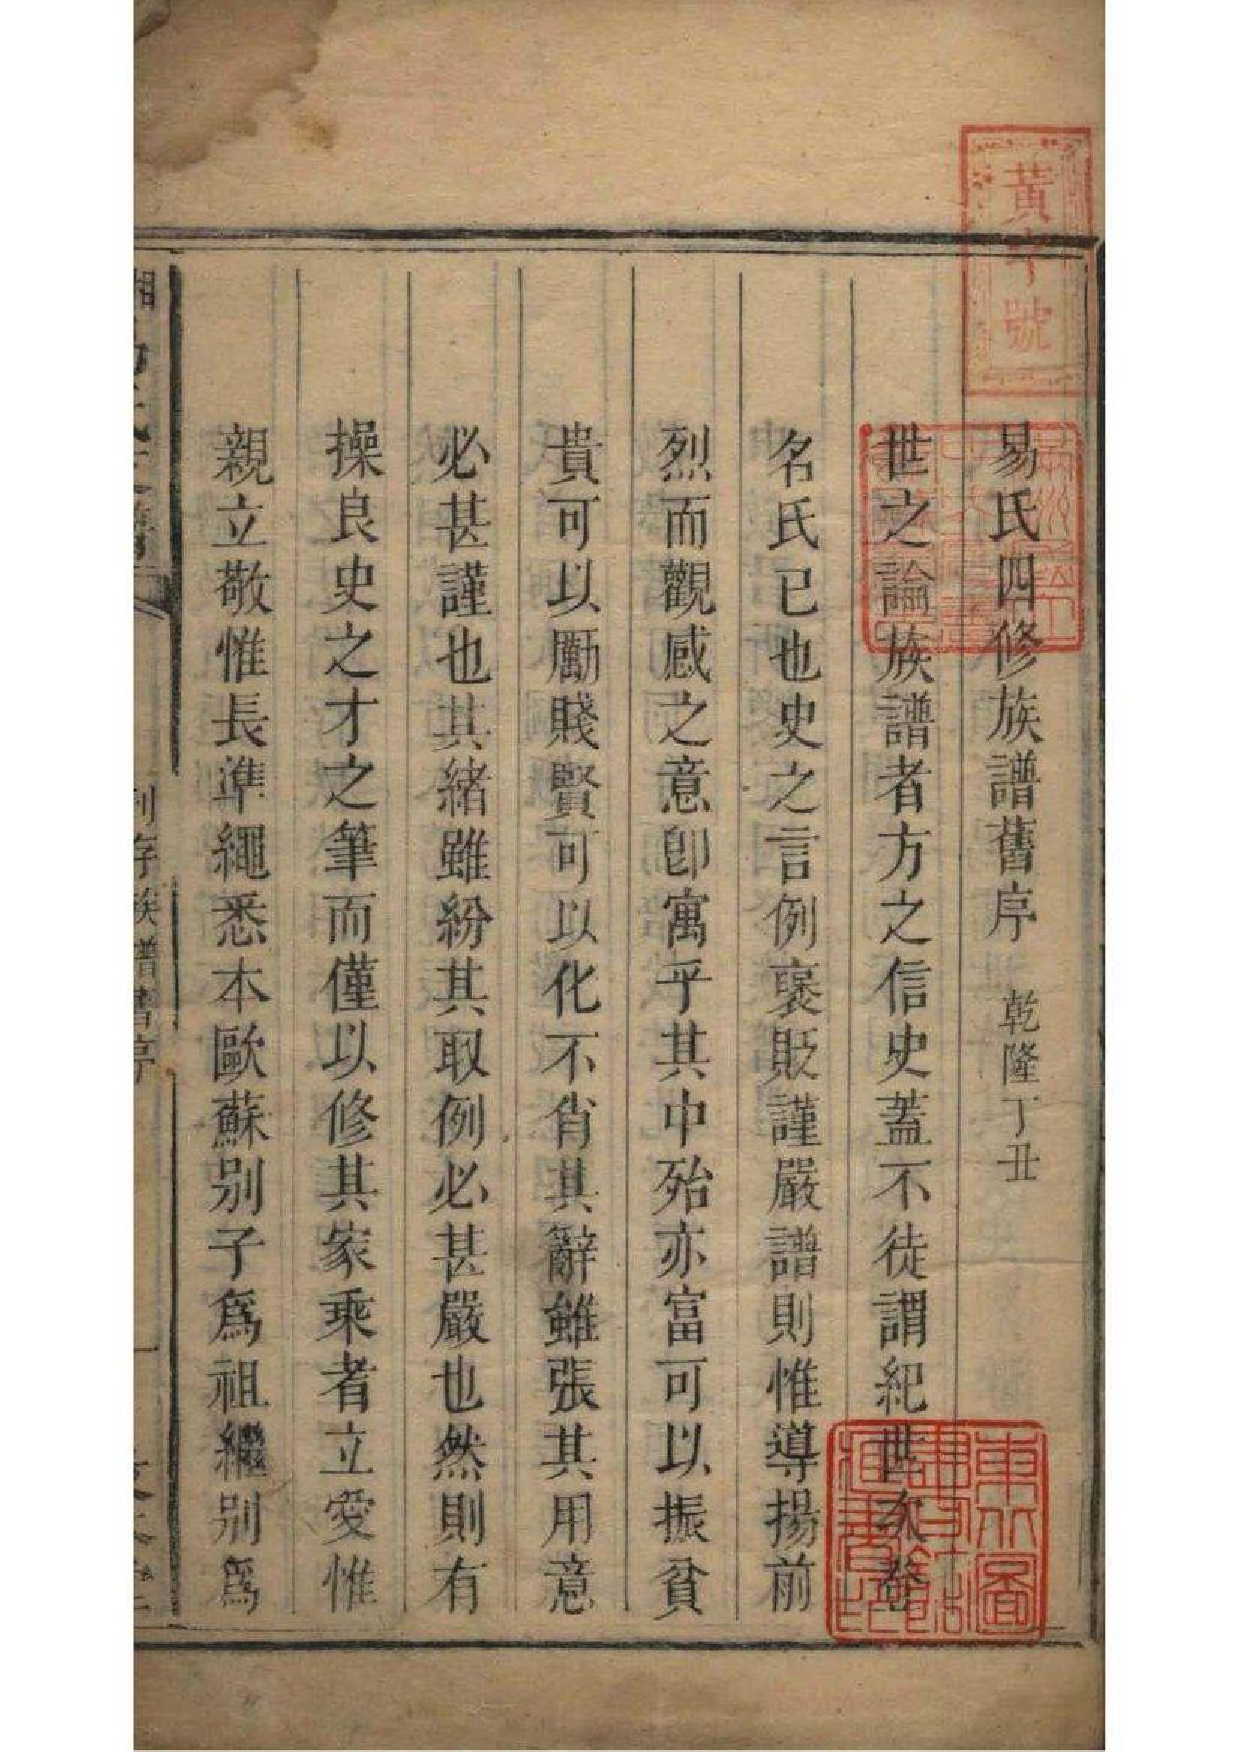 易氏四修族譜舊序 乾隆丁丑
世之論族譜者方之信史蓋不徒謂紀世次卷
名氏已也史之言例褒貶謹嚴譜則惟導揚前
烈而觀感之意卽寓乎其中殆亦富可以振貧
貴可以勵賤賢可以化不肖其辭雖張其用意
必甚謹也其緒雖紛其取例必甚嚴也然則有
操良史之才之筆而僅以修其家乘者立愛惟
親立敬惟長準繩悉本歐蘇别子爲祖繼别爲
黃字號